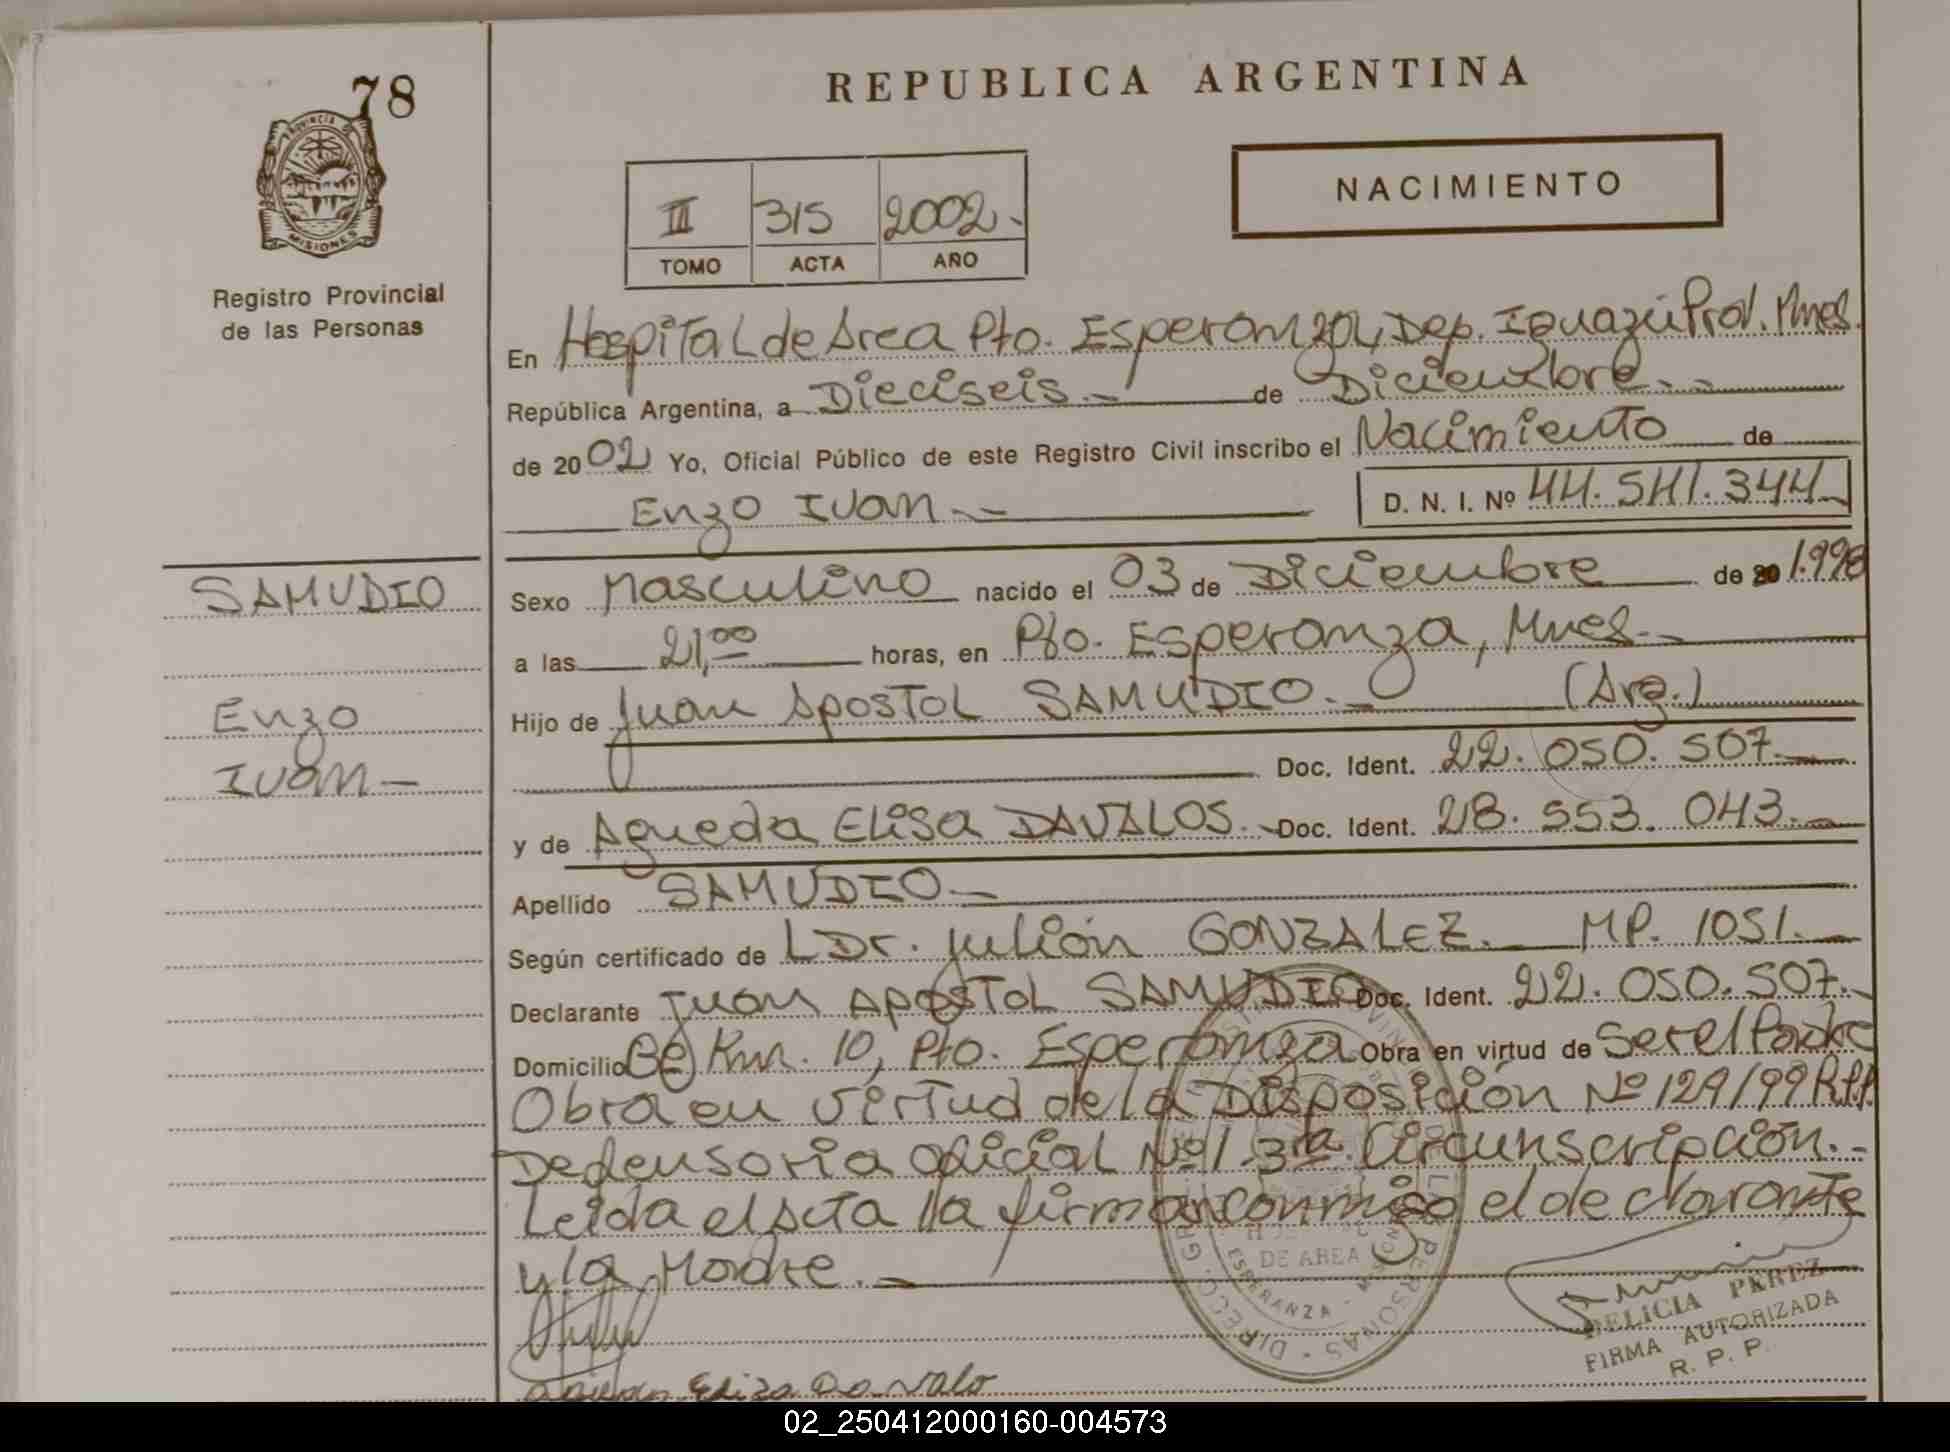 78
REPUBLICA ARGENTINA
PROVINCIA DE
MISIONES
Registro Provincial
de las Personas
NACIMIENTO
III 315 2002.-
TOMO ACTA AÑO
En Hospital de Area Pto. Esperanza, Dep. Iguazú Prov. Mnes.
República Argentina, a Dieciseis.- de Diciembre.-
de 2002 Yo, Oficial Público de este Registro Civil inscribo el Nacimiento de
Enzo Ivan.- D. N. I. Nº 44.541.344
SAMUDIO
Enzo
Ivan-
Sexo Masculino nacido el 03 de Diciembre de 20 1.998
a las 21,00 horas, en Pto. Esperanza, Mnes.-
Hijo de Juan Apostol SAMUDIO.- (Arg.)
Doc. Ident. 22.050.507.-
y de Agueda Elisa DAVALOS.- Doc. Ident. 28.553.043.-
Apellido SAMUDIO-
Según certificado de L Dr. Julián GONZALEZ. MP. 1051.-
Declarante Juan Apostol SAMUDIO Doc. Ident. 22.050.507.-
Domicilio Bº Km. 10, Pto. Esperanza Obra en virtud de Ser el Padre
Obra en virtud de la Disposición Nº 129/99 R.P.P.
Defensoria Oficial Nº 1 3ra. Circunscripción.-
Leida el acta la firman conmigo el declarante
y la Madre.-
DE AREA
ESPERANZA
PERSONAS
DELICIA PEREZ
FIRMA AUTORIZADA
R. P. P.
Eliza Davalo
02_250412000160-004573